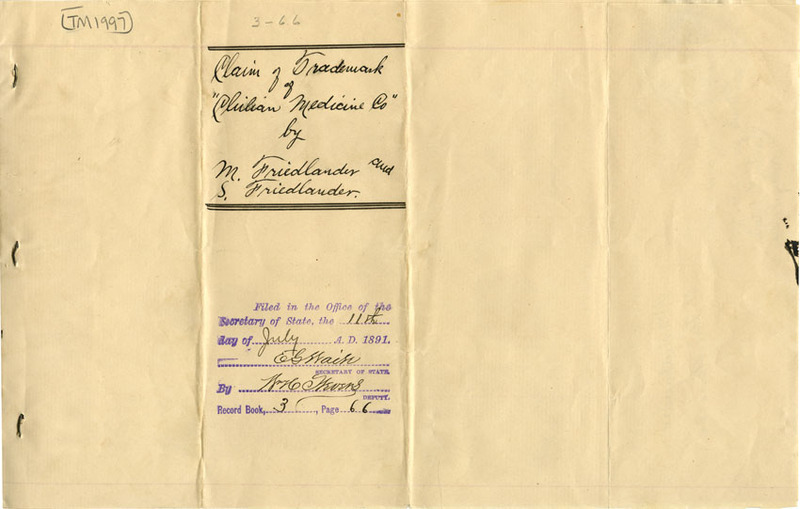 [TM1997]
3-66
Claim of Trademark
of
"Chilian Medicine Co"
by
M. Friedlander and
S. Friedlander.
Filed in the Office of the
Secretary of State, the 11th
day of July A. D. 1891.
E G Waite
SECRETARY OF STATE.
By W H C Stevens
DEPUTY.
Record Book, 3, Page 66